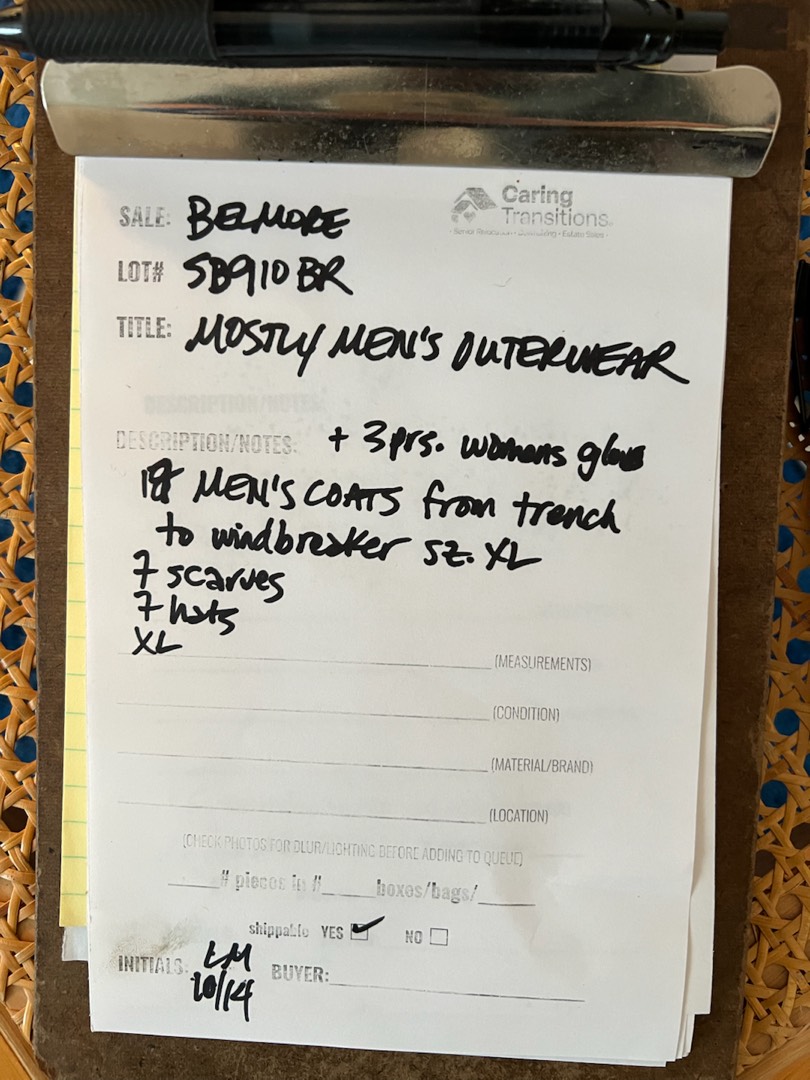 Caring
Transitions
SALE: BELMORE
LOT# SB910BR
TITLE: MOSTLY MEN'S OUTERWEAR
DESCRIPTION/NOTES:
DESCRIPTION/NOTES: + 3prs. womens gloves
MEN'S COATS from trench
to windbreaker sz. XL
7 scarves
7 hats
XL
(MEASUREMENTS)
(CONDITION)
(MATERIAL/BRAND)
(LOCATION)
(CHECK PHOTOS FOR BLUR/LIGHTING BEFORE ADDING TO QUEUE)
____# pieces in #____boxes/bags/____
shippable YES NO
INITIALS: LM BUYER:
10/14